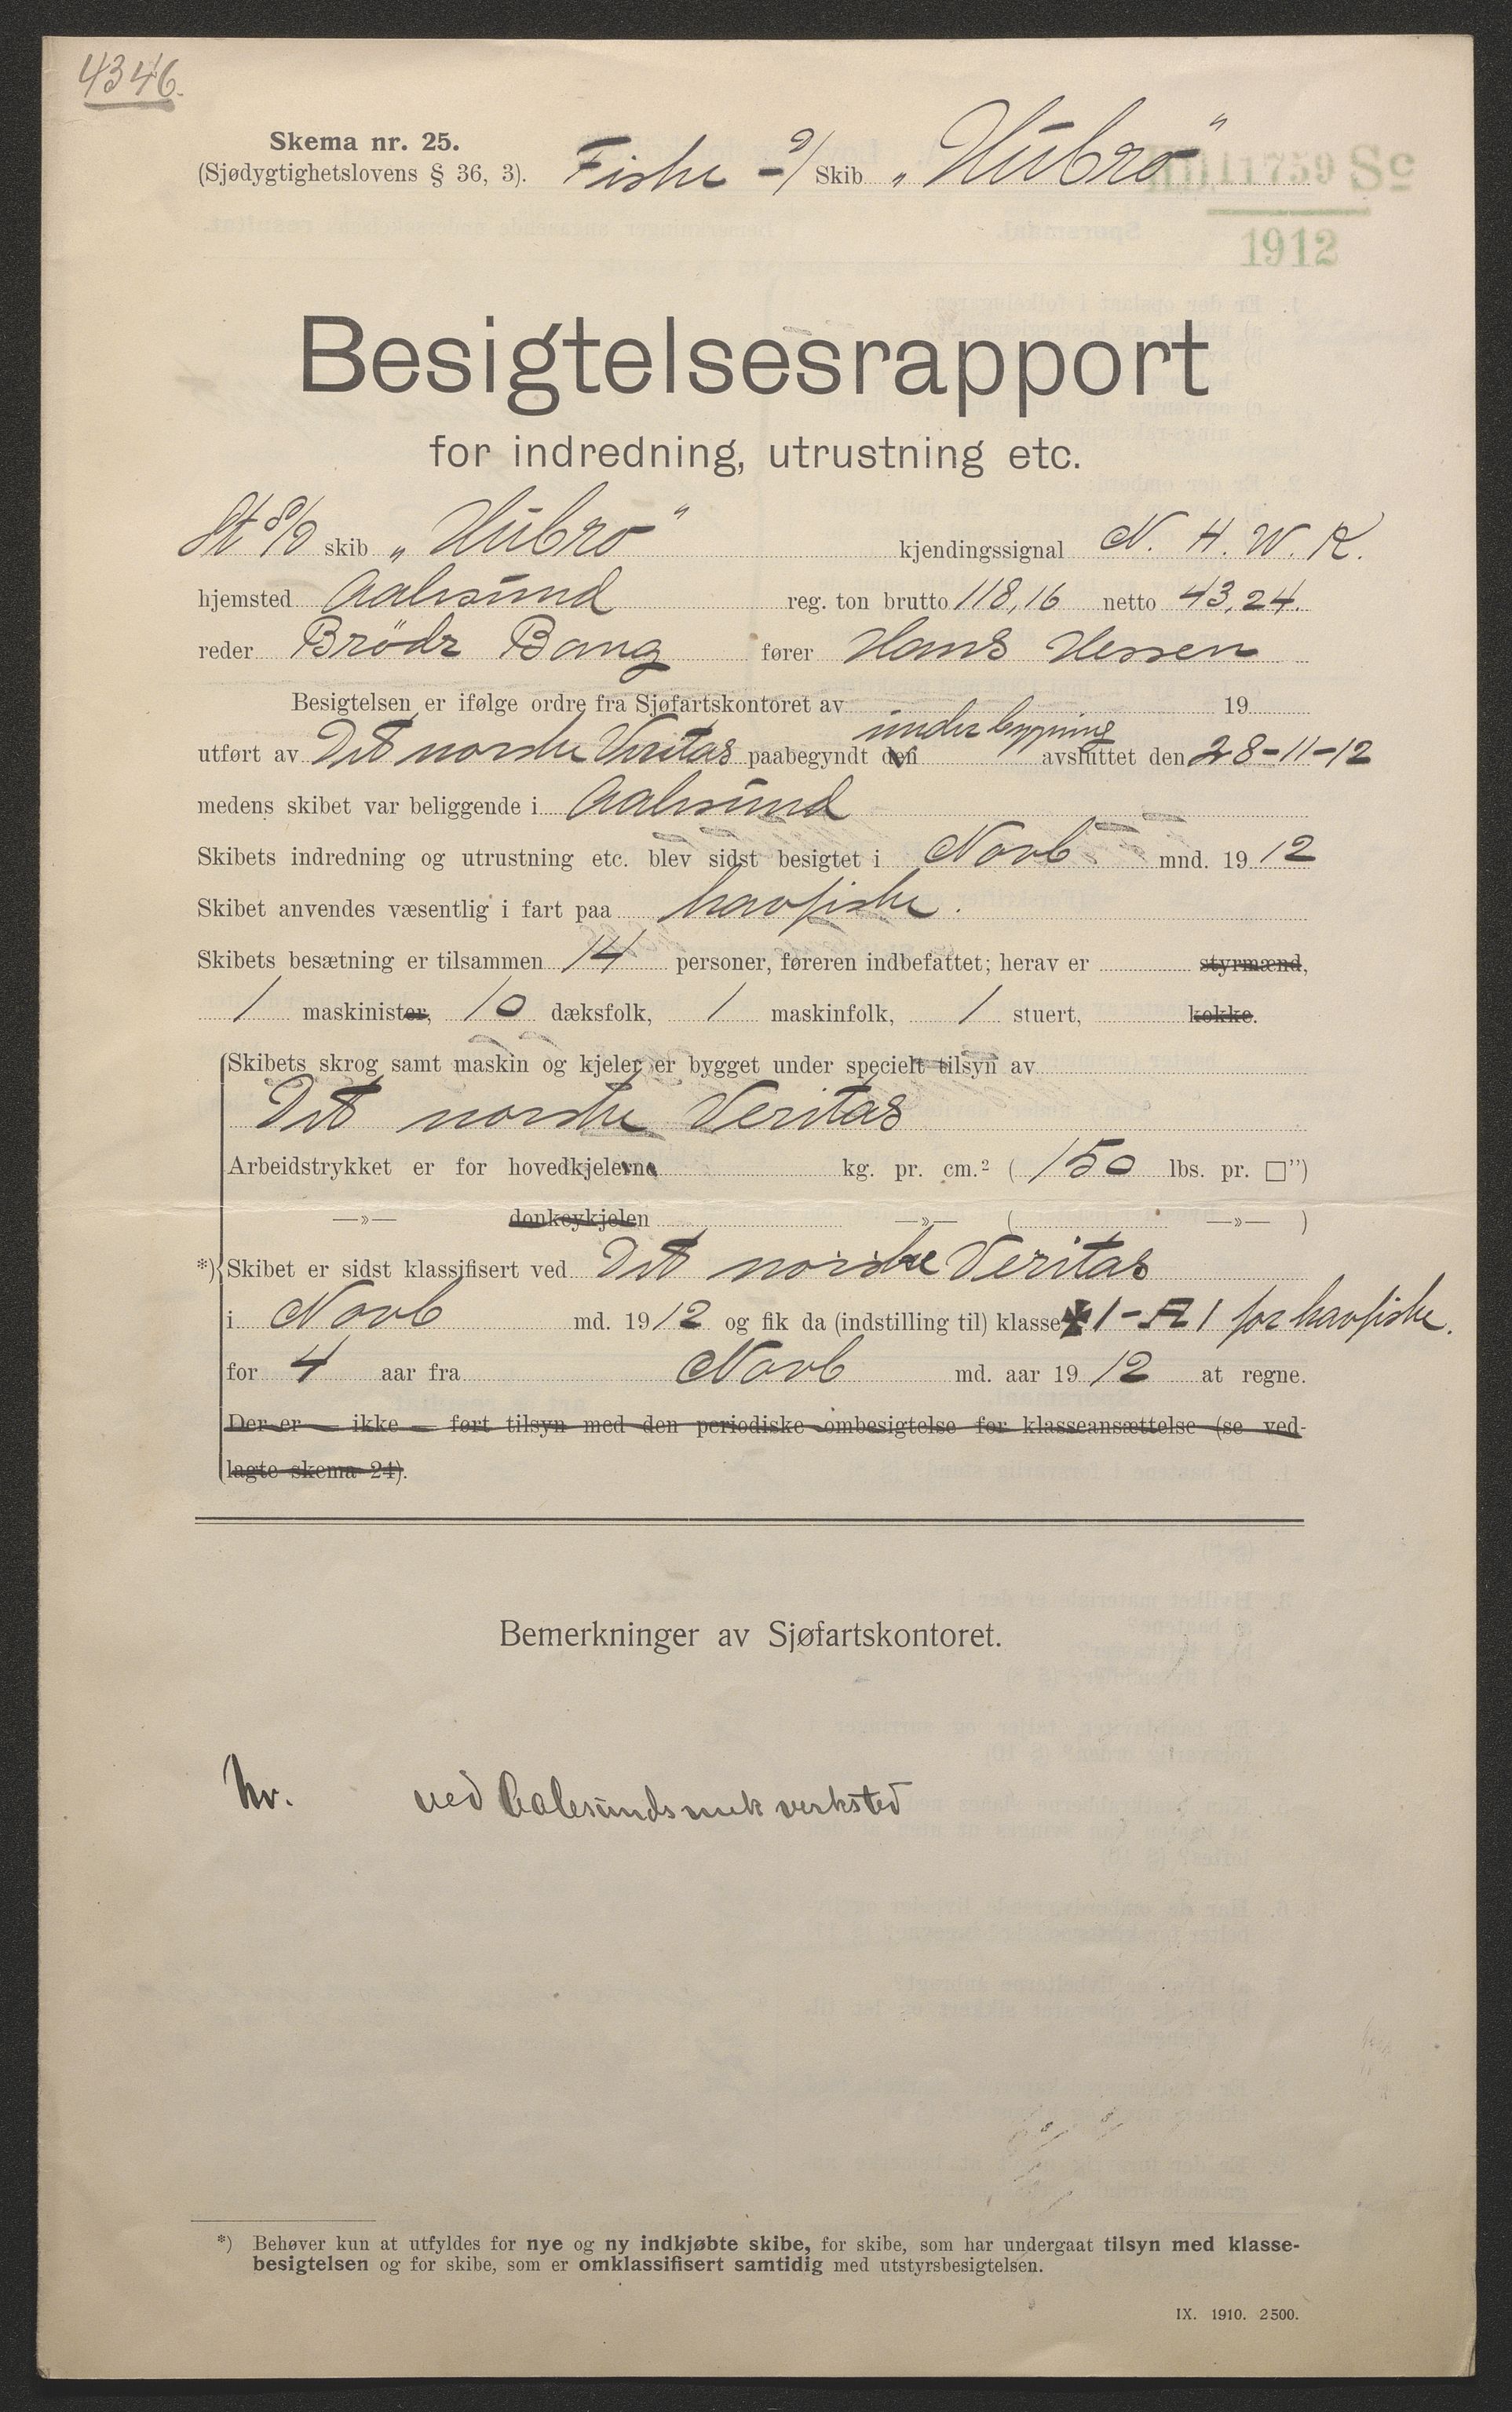 4346.
Skema nr. 25.
(Sjødygtighetslovens § 36, 3). Fiske - D/ Skib „Hubro"
11759 Sc
1912
Besigtelsesrapport
for indredning, utrustning etc.
St D/S skib „Hubro" kjendingssignal N. H. W. K.
hjemsted Aalesund reg. ton brutto 118,16 netto 43,24.
reder Brödr Bang fører Hans Hessen
Besigtelsen er ifølge ordre fra Sjøfartskontoret av 19
utført av Det norske Veritas paabegyndt den under bygning avsluttet den 28-11-12
medens skibet var beliggende i Aalesund
Skibets indredning og utrustning etc. blev sidst besigtet i Novb mnd. 1912
Skibet anvendes væsentlig i fart paa havfiske.
Skibets besætning er tilsammen 14 personer, føreren indbefattet; herav er styrmænd,
1 maskinister, 10 dæksfolk, 1 maskinfolk, 1 stuert, kokke.
Skibets skrog samt maskin og kjeler er bygget under specielt tilsyn av
Det norske Veritas
Arbeidstrykket er for hovedkjelerne kg. pr. cm.² ( 150 lbs. pr. □")
—»— donkeykjelen —»— ( —»— )
*) Skibet er sidst klassifisert ved Det norske Veritas
i Novb md. 1912 og fik da (indstilling til) klasse ✠ 1 - A 1 for havfiske.
for 4 aar fra Novb md. aar 1912 at regne.
Der er — ikke — ført tilsyn med den periodiske ombesigtelse for klasseansættelse (se ved-
lagte skema 24).
Bemerkninger av Sjøfartskontoret.
ved Aalesunds mek verksted
*) Behøver kun at utfyldes for nye og ny indkjøbte skibe, for skibe, som har undergaat tilsyn med klasse-
besigtelsen og for skibe, som er omklassifisert samtidig med utstyrsbesigtelsen.
IX. 1910. 2500.